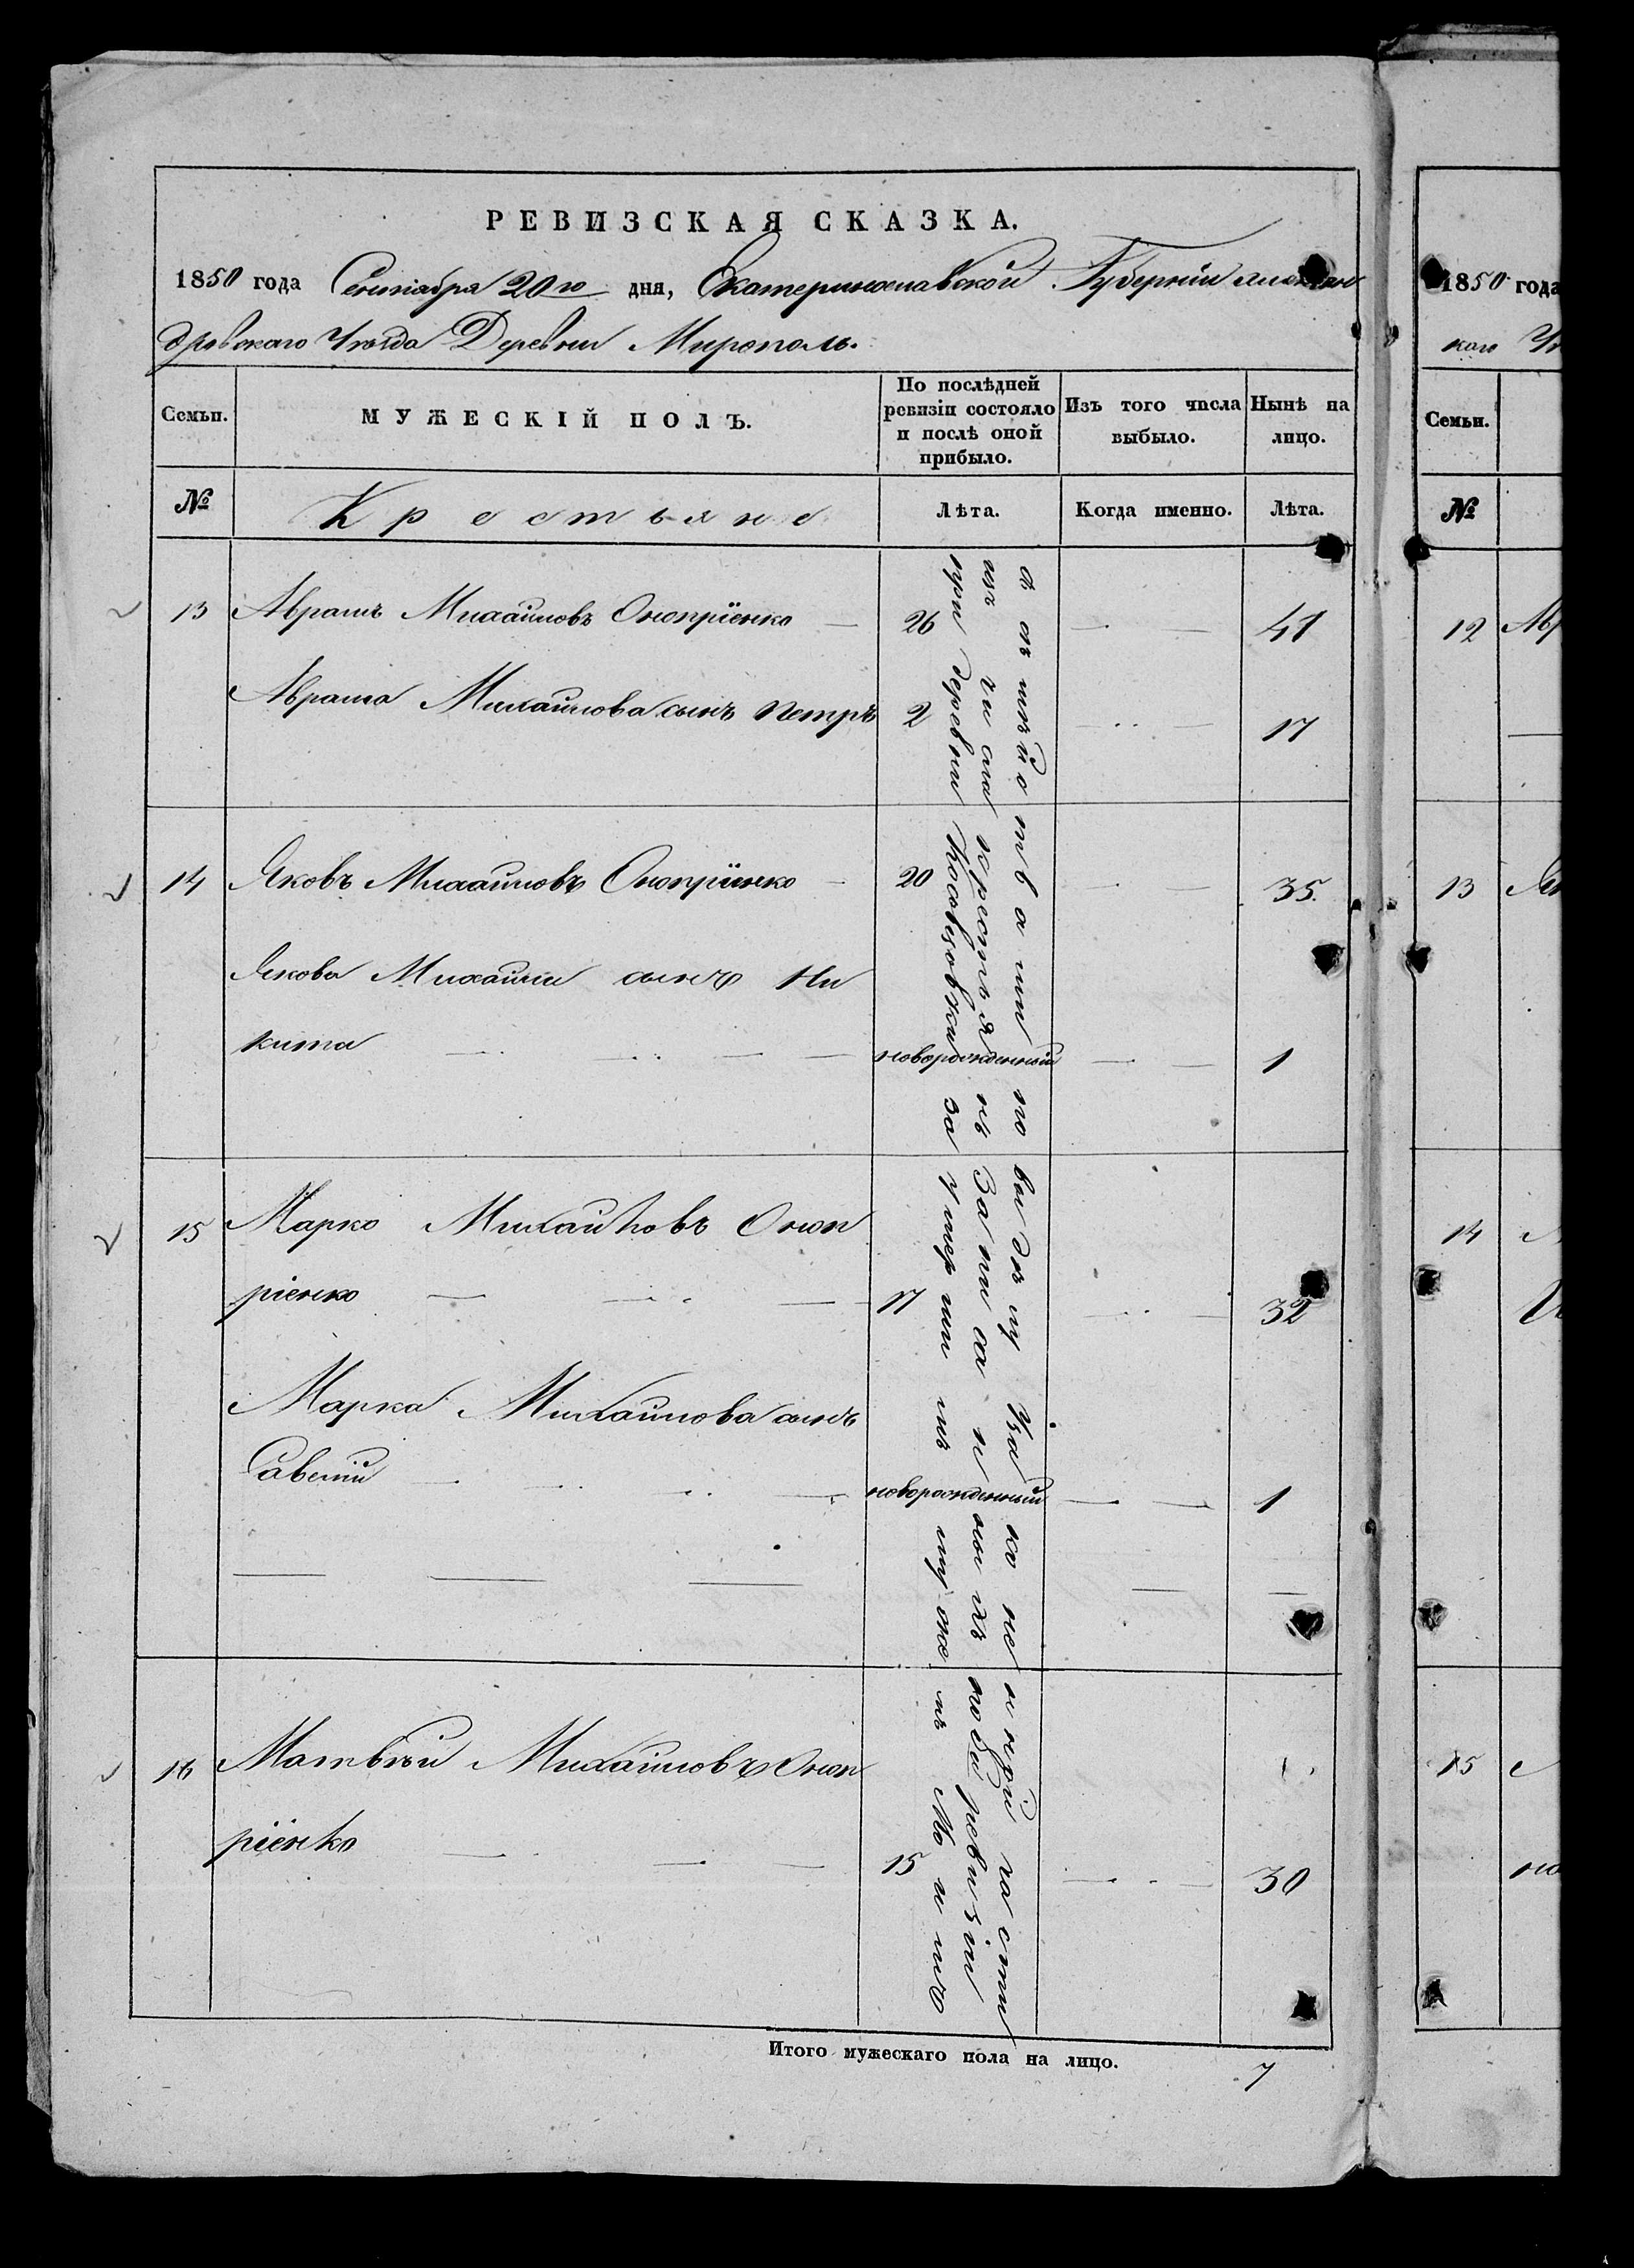 РЕВИЗСКАЯ СКАЗКА.
1850 года Сентября 20го дня, Екатеринославской Губерніи Алексан
дровскаго Уѣзда Деревни Мирополь.
Семьи. МУЖЕСКІЙ ПОЛЪ. По послѣдней ревизіи состояло и послѣ оной прибыло. Изъ того числа выбыло. Нынѣ на лицо.
№ Крестьяне Лѣта. Когда именно. Лѣта.
13 Аврамъ Михайловъ Оноприенко 26 41
Аврама Михайлова сынъ Петръ 2 17
14 Яковъ Михайловъ Оноприенко 20 35
Якова Михайли сынъ Ни
кита новорожденный 1
15 Марко Михайловъ Оноп
ріенко 17 32
Марка Михайлова сынъ
Савелій новорожденный 1
16 Матвѣй Михайловъ Оноп
ріенко 15 30
изъ числа крестьянъ записанныхъ по 8й ревизіи
при деревни за умершимъ мужемъ
Итого мужескаго пола на лицо. 7
1850 года
каго
Семьи.
№
12
13
14
15